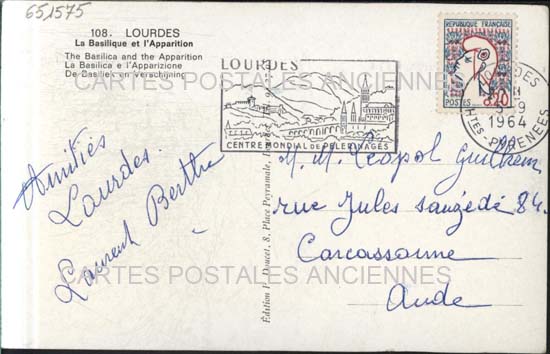 651575
108. LOURDES
La Basilique et l'Apparition
The Basilica and the Apparition
La Basilica e l'Apparizione
De Basiliek en Verschijning
CARTES POSTALES ANCIENNES
Amitiés
Lourdes.
Laurent Berthe
LOURDES
CENTRE MONDIAL DE PÉLERINAGES
REPUBLIQUE FRANÇAISE
POSTES
0,20
1964
HTES-PYRENEES
Edition P. Doucet, 8, Place Peyramale,
M. M. Léopol Guilhem
rue Jules sauzédé 84.
Carcassonne
Aude
CARTES POSTALES ANCIENNES